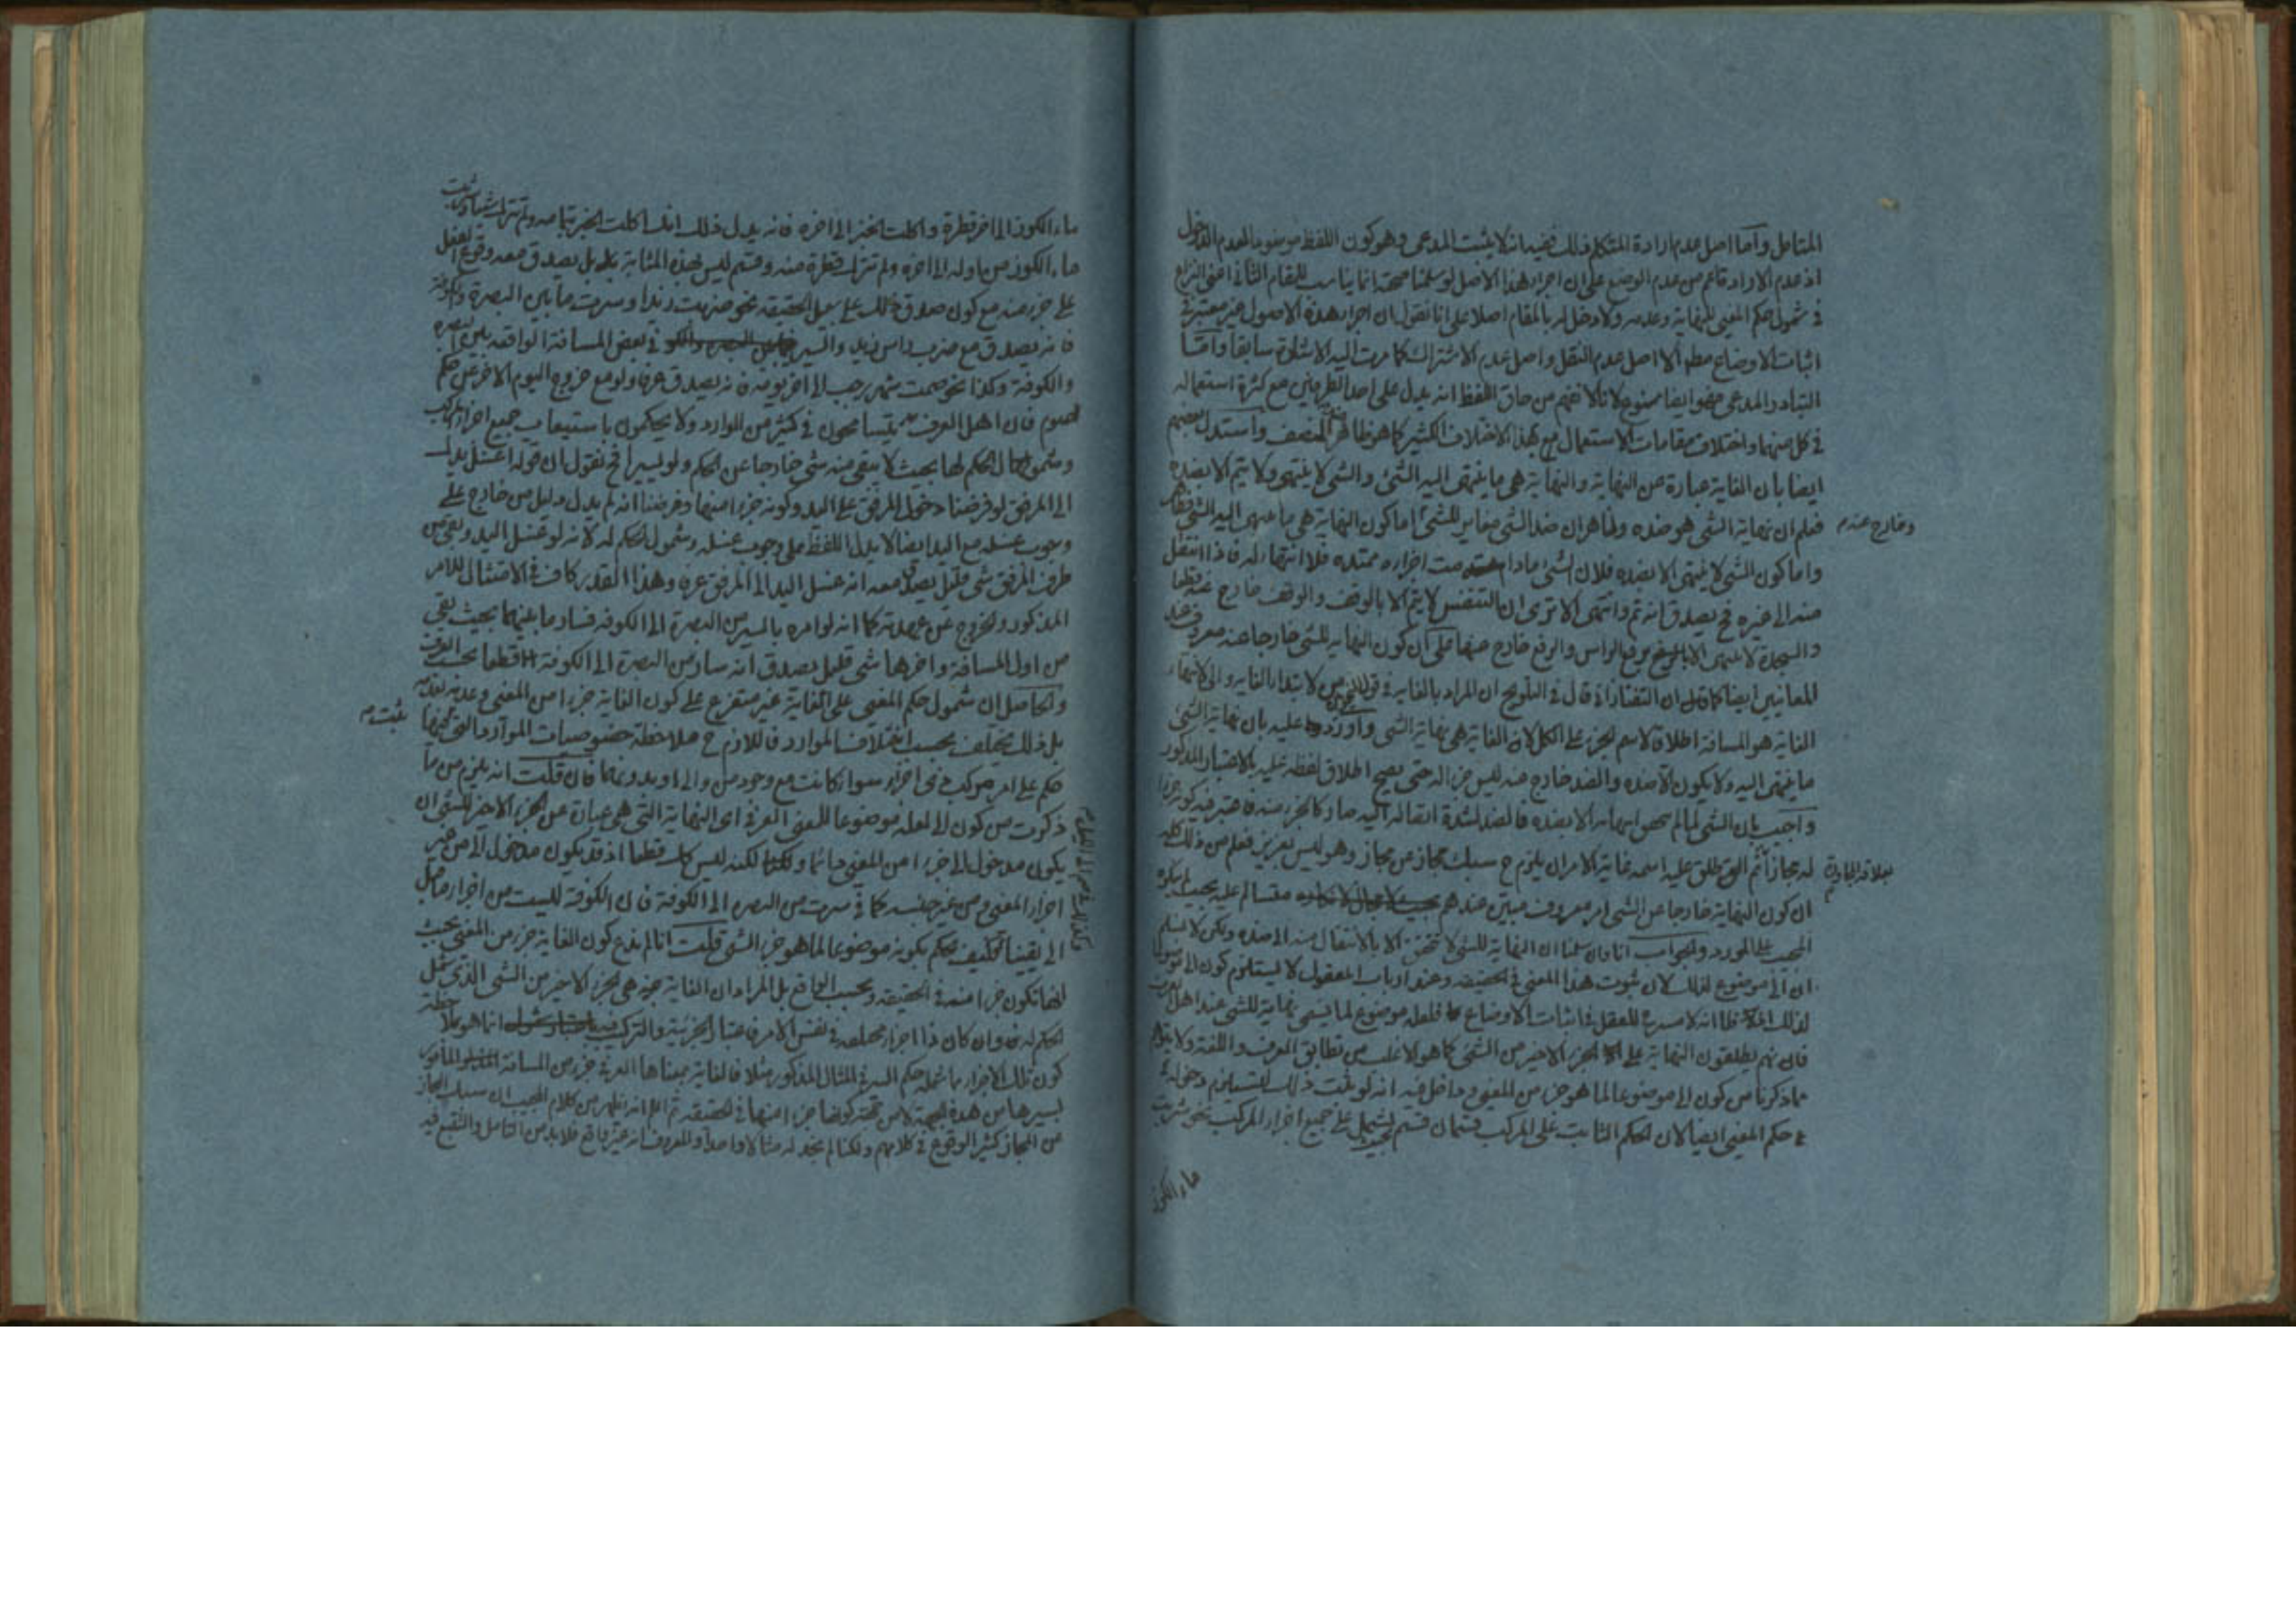 المتامل واما اصل عدم ارادة المتكلم فذلك ففيه انه لا يثبت المدعى وهو كون اللفظ موضوعا لعدم الدخول
اذ عدم الارادة اعم من عدم الوضع على ان اجراء هذا الاصل لو سلمنا صحته انما يناسب للمقام الثاني اعنى النزاع
في شمول حكم المغيى للنهاية وعدمه ولا دخل له بالمقام اصلا على انا نقول ان اجراء هذه الاصول غير معتبرة في
اثبات الاوضاع مطلقا الا اصل عدم النقل واصل عدم الاشتراك كما مرت اليه الاشارة سابقا واما
التبادر المدعى فهو ايضا ممنوع لانا لا نفهم من حاق اللفظ انه يدل على احد الطرفين مع كثرة استعماله
في كل منهما واختلاف مقامات الاستعمال مع هذا الاختلاف الكثير كما هو ظاهر للمنصف واستدل بعضهم
ايضا بان الغاية عبارة عن النهاية والنهاية هي ما ينتهى اليه الشئ والشئ لا ينتهى ولا يتم الا بضده
فعلم ان نهاية الشئ هو ضده وظاهر ان ضد الشئ مغاير للشئ اما كون النهاية هي ما ينتهى اليه الشئ فظاهر
وخارج عنه م
واما كون الشئ لا ينتهى الا بضده فلان الشئ مادامت اجزاءه ممتده فلا انتهاء له فاذا انتقل
منه الى غيره فح يصدق انه تم وانتهى الا ترى ان التنفس لا يتم الا بالوقف والوقف خارج عنه قطعا
والسجدة لا ينتهى الا برفع الراس والرفع خارج عنها على ان كون النهاية للشئ خارجا عنه معروف عند
المعانيين ايضا كما قال ان التفتازاني قال في التلويح ان المراد بالغاية في قولهم من لابتداء الغاية والى لانتهاء
الغاية هو المسافة اطلاقا لاسم الجزء على الكل لان الغاية هي نهاية الشئ واورد عليه بان نهاية الشئ
ما ينتهى اليه ولا يكون الا ضده والضد خارج عنه ليس جزء له حتى يصح اطلاق لفظه عليه بالاعتبار المذكور
واجيب بان الشئ لما لم ينتهى الا بضده فالضد لشدة اتصاله اليه صار كالجزء منه فاعتبر فيه كونه جزءا
له مجازا ثم اطلق عليه اسمه غاية الامر ان يلزم ح سبك مجاز عن مجاز وهو ليس بعزيز فعلم من ذلك كله
بعلاقة المجاورة م
ان كون النهاية خارجا عن الشئ امر معروف مبين عندهم متسالم عليه بحيث لم ينكره
المجيب على المورد والجواب انا وان سلمنا ان النهاية للشئ لا تتحقق الا بالانتقال منه الى ضده ولكن لا نسلم
ان الى موضوع لذلك لان ثبوت هذا المعنى في الحقيقة وعند ارباب المعقول لا يستلزم كون الى موضوعا
لذلك لما انه لا مسرح للعقل في اثبات الاوضاع فلعله موضوع لما يسمى نهاية للشئ عند اهل العرف
فانهم يطلقون النهاية على الجزء الاخير من الشئ كما هو الاغلب من تطابق العرف واللغة ولا يلزم
مما ذكرنا من كون الى موضوعا لما هو جزء من المغيى وداخل فيه انه لو ثبت ذلك لاستلزم دخوله في
حكم المغيى ايضا لان الحكم الثابت على المركب قسمان قسم يشمل على جميع اجزاء المركب نحو شربت
ماء الكوز
ماء الكوز الى اخر قطرة واكلت الخبز الى اخره فانه يدل ذلك انك اكلت الخبز بتمامه ولم تترك شيئا وشربت
ماء الكوز من اوله الى اخره ولم تترك قطرة منه وقسم ليس بهذه المثابة بل يصدق معه وقوع الفعل
على جزء منه مع كون صدق ذلك على سبيل الحقيقة نحو ضربت زيدا وسرت ما بين البصرة والكوفة
فانه يصدق مع ضرب راس زيد والسير في بعض المسافة الواقعة بين البصرة
والكوفة وكذا نحو صمت شهر رجب الى اخر يومه فانه يصدق عرفا ولو مع خروج اليوم الاخر عن حكم
الصوم فان اهل العرف يتسامحون في كثير من الموارد ولا يحكمون باستيعاب جميع اجزاء المركب
وشمول الحكم لها بحيث لا يبقى منه شئ خارجا عن الحكم ولو يسيرا فح نقول ان قوله اغسل يدك
الى المرفق لو فرضنا دخول المرفق على اليد وكونه جزءا منها وفرضنا انه لم يدل دليل من خارج على
وجوب غسله مع اليد ايضا لا يدل اللفظ على وجوب غسله وشمول الحكم له لانه لو غسل اليد وبقى من
طرف المرفق شئ قليل يصدق معه انه غسل اليد الى المرفق عرفا وهذا القدر كاف في الامتثال للامر
المذكور والخروج عن عهدته كما انه لو امره بالسير من البصرة الى الكوفة فسار ما بينهما بحيث بقى
من اول المسافة واخرها شئ قليل يصدق انه سار من البصرة الى الكوفة قطعا بحسب العرف
والحاصل ان شمول حكم المغيى على الغاية غير متفرع على كون الغاية جزءا من المغيى وعدمه
بل ذلك يختلف بحسب اختلاف الموارد فاللازم ح ملاحظة خصوصيات الموارد التى فيها
يثبت م
حكم على امر مركب ذى اجزاء سواء كانت مع وجود من والى او بدونهما فان قلت انه يلزم من ما
ذكرت من كون الى لعله موضوعا للمعنى العرفى اى النهاية التى هي عبارة عن الجزء الاخر للشئ ان
يكون مدخول الى جزءا من المغيى دائما لكنه ليس كك قطعا اذ قد يكون مدخول الى من غير
اجزاء المغيى ومن غير جنسه كما في سرت من البصرة الى الكوفة فان الكوفة ليست من اجزاء ما قبل
الى يقينا فكيف يحكم بكونه موضوعا لما هو جزء الشئ قلت انا لم ندع كون الغاية جزء من المغيى بحيث
انها تكون جزءا منه في الحقيقة وبحسب الواقع بل المراد ان الغاية هي الجزء الاخير من الشئ الذى شمل
الحكم له وان كان ذا اجزاء مختلفة في نفس الامر فاعتبار الجزئية والتركيب انما هو بملاحظة
كون تلك الاجزاء مما شمله حكم السير في المثال المذكور مثلا فالغاية بمعناها العرفى جزء من المسافة
لسيرها من هذه الجهة لا من جهة كونها جزءا منها في الحقيقة ثم انه يظهر من كلام المجيب ان سبك المجاز
عن المجاز كثير الوقوع في كلامهم ولكنا لم نجد له مثالا واحدا والمعروف انه غير واقع فلا بد من التامل والتتبع فيه